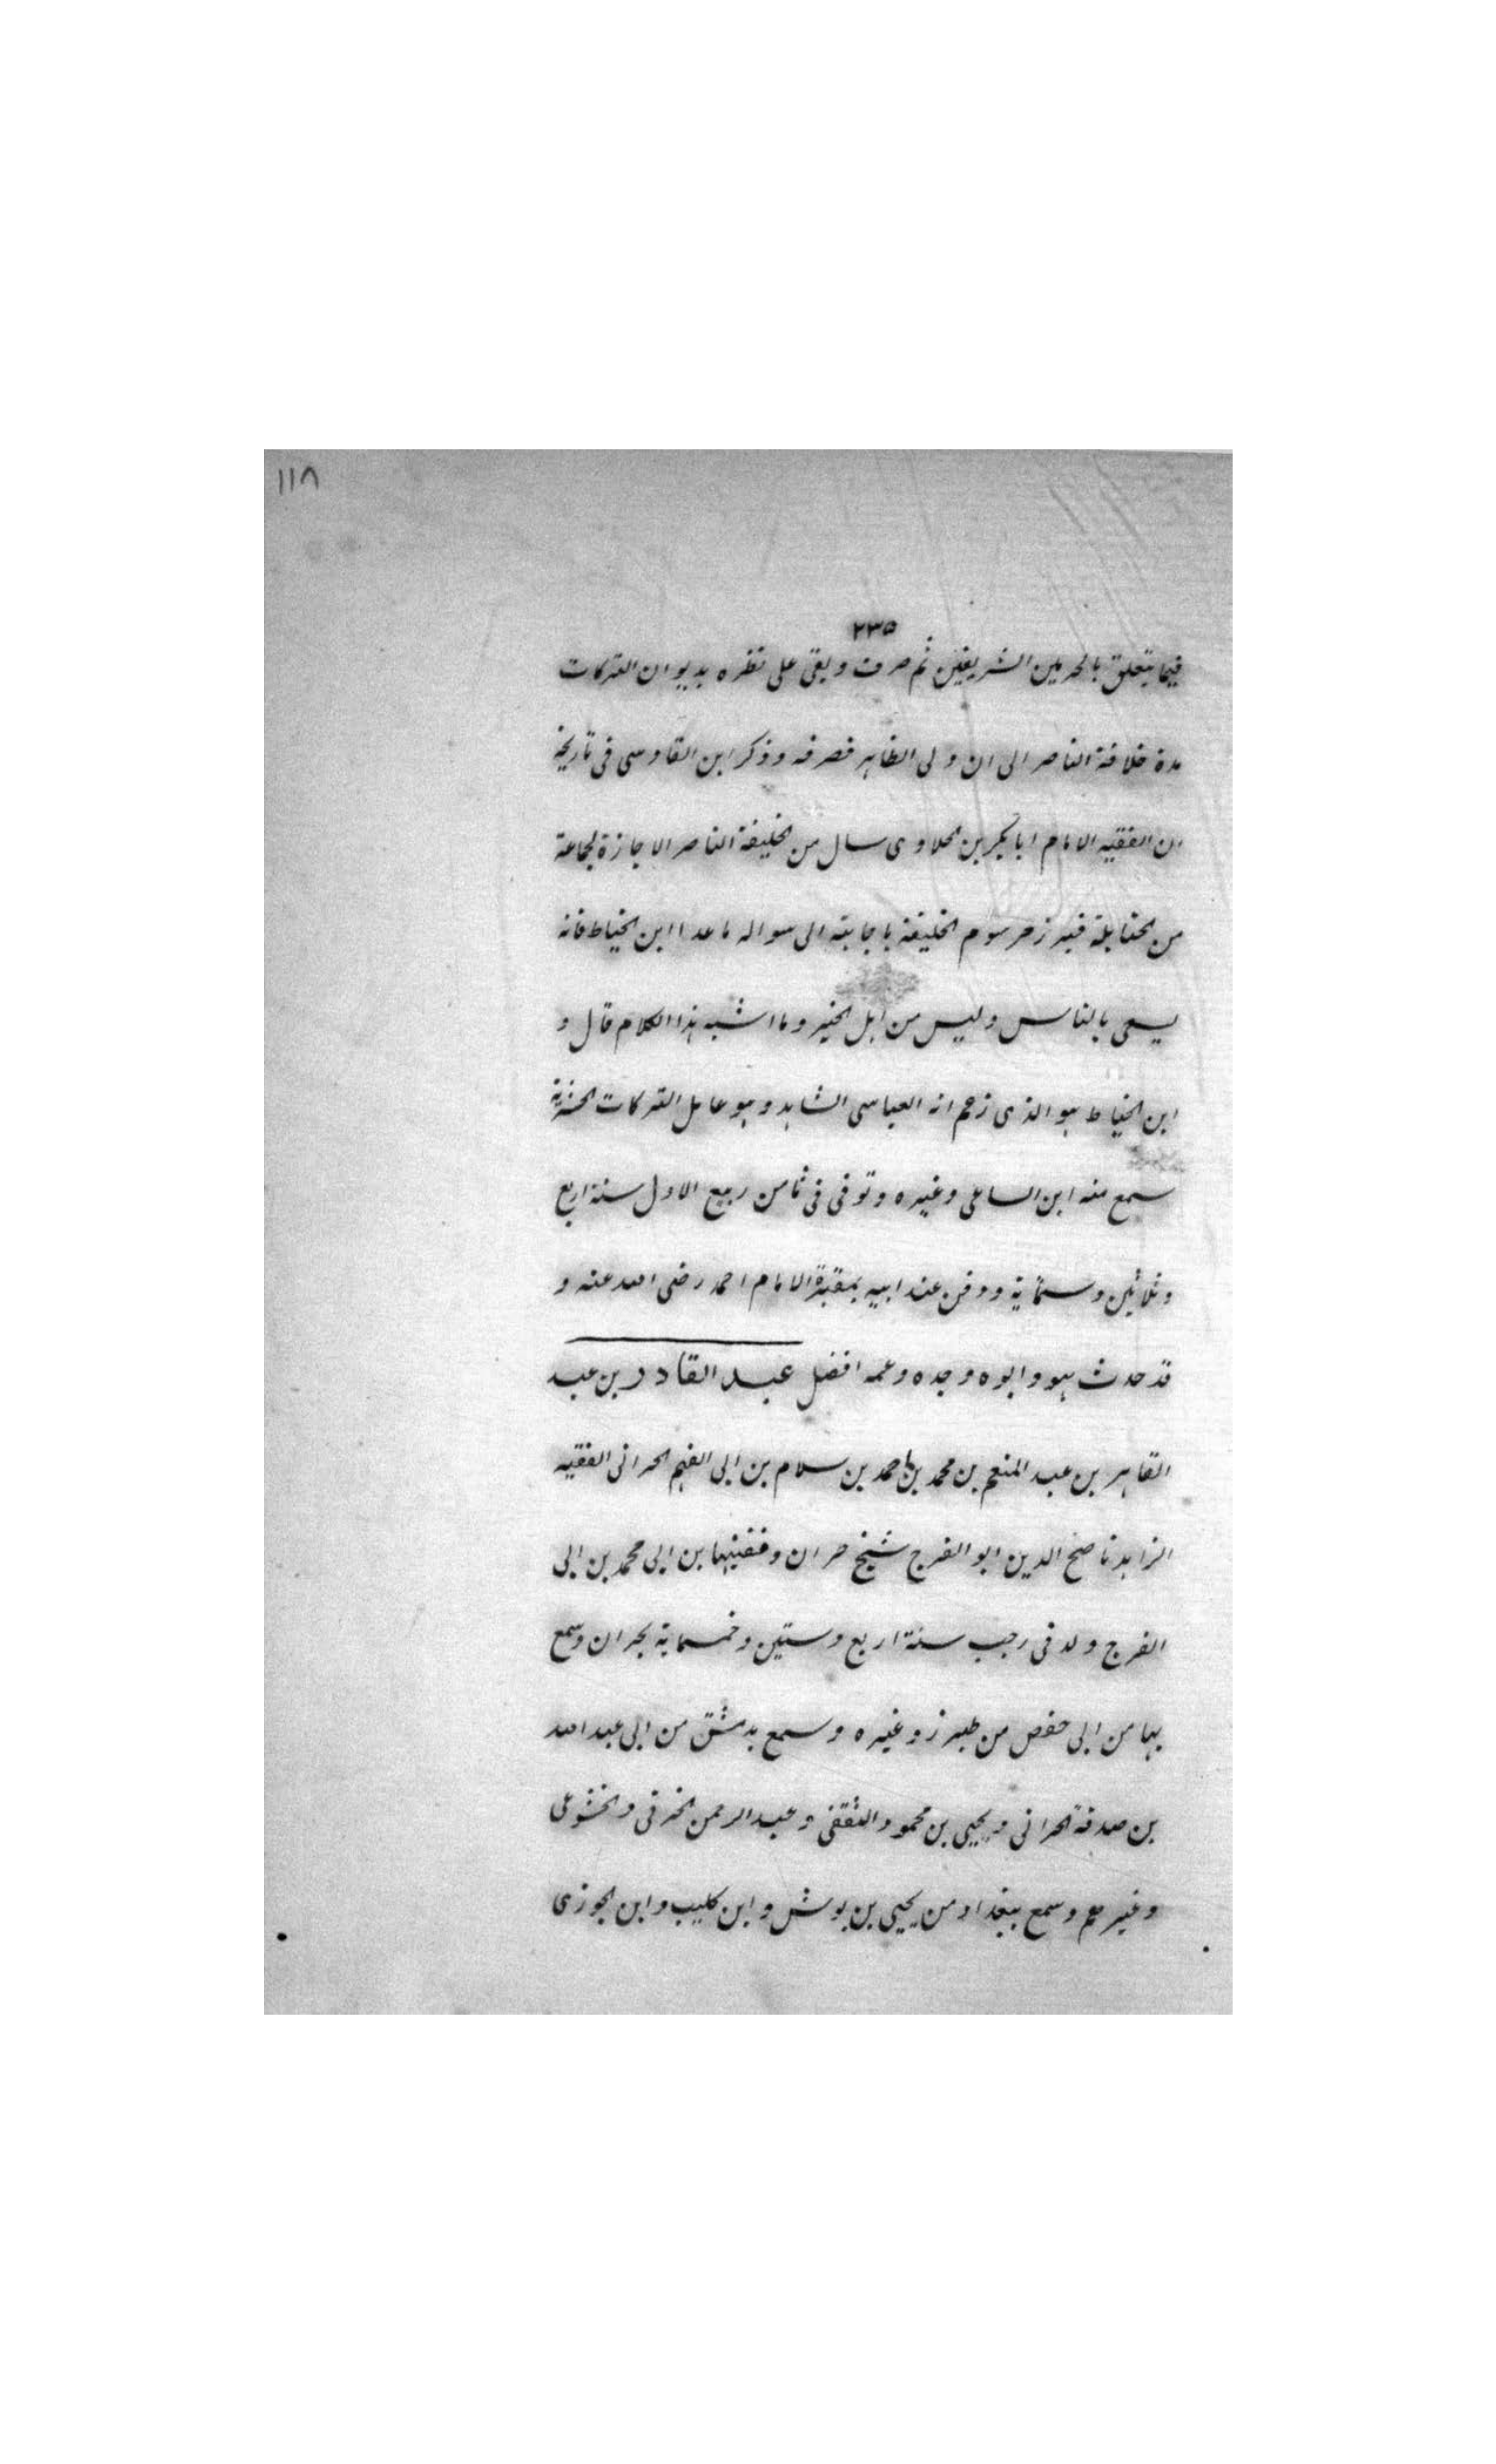 ١١٨
٢٣٥
فيما يتعلق بالحرمين الشريفين ثم صرف وبقى على نظره بديوان التركات
مدة خلافة الناصر الى ان ولى الظاهر فصرفه وذكر ابن القادسى فى تاريخه
ان الفقيه الامام ابا بكر بن الحلاوى سال من الخليفة الناصر الاجازة لجماعة
من الحنابلة فبرز مرسوم الخليفة باجابته الى سواله ما عدا ابن الخياط فانه
يسعى بالناس وليس من اهل الخير وما اشبه هذا الكلام قال و
ابن الخياط هو الذى زعم انه العباسى الشاهد وهو عامل التركات الحشرية
سمع منه ابن الساعى وغيره وتوفى فى ثامن ربيع الاول سنة اربع
وثلاثين وستماية ودفن عند ابيه بمقبرة الامام احمد رضى الله عنه و
قد حدث هو وابوه وجده وعمه افضل عبد القادر بن عبد
القاهر بن عبد المنعم بن محمد بن احمد بن سلام بن ابى الفهم الحرانى الفقيه
الزاهد ناصح الدين ابو الفرج شيخ حران وفقيهها بن ابى محمد بن ابى
الفرج ولد فى رجب سنة اربع وستين وخمسماية بحران وسمع
بها من ابى حفص من طبرزد وغيره وسمع بدمشق من ابى عبد الله
بن صدقة الحرانى ويحيى بن محمود الثقفى وعبد الرحمن الخرقى والخشوعى
وغيرهم وسمع ببغداد من يحيى بن بوش وابن كليب وابن الجوزى